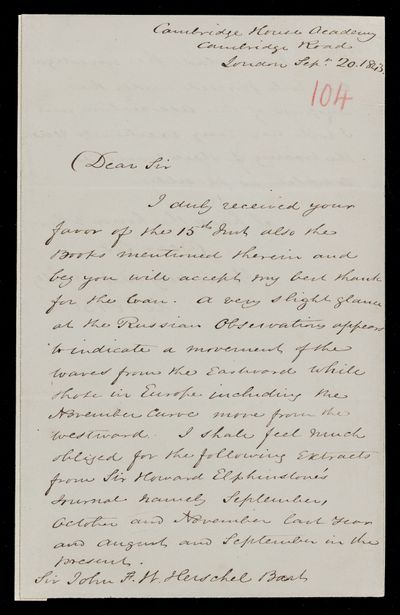 Cambridge House Academy
Cambridge Road
London Sepr. 20. 1843.
104
Dear Sir
I duly received your
favor of the 15th Inst also the
Books mentioned therein and
beg you will accept my best thank
for the loan. A very slight glance
at the Russian Observations appears
to indicate a movement of the
waves from the Eastward while
those in Europe including the
November Curve move from the
westward. I shall feel much
obliged for the following Extracts
from Sir Howard Elphinstone's
Journal namely September,
October and November last year
and August and September in the
present.
Sir John F. W. Herschel Bart